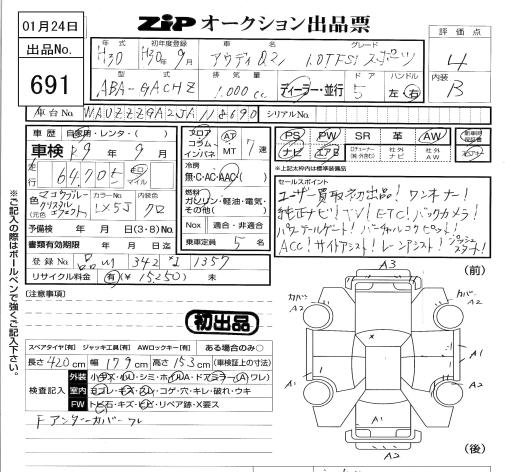 01月24日
ZIP オークション出品票
出品No.
691
年式 初年度登録 車名 グレード
H30 H30年9月 アウディQ2 1.0TFSI スポーツ
型式 排気量 ドア ハンドル
ABA-GACHZ 1,000cc ディーラー・並行 5 左・右
評価点
4
内装
B
車台No. WAUZZZGA2JA118690 シリアルNo.
車歴 自家用・レンタ・( )
車検 R9年9月
走行 64,705 キロ マイル
色 (元色) カラーNo. LX5J 内装 クロ
予備検 年 月 日(3・8)No.
書類有効期限 年 月 日迄
登録No. 品川 342 1357
リサイクル料金 有(¥15,250) 未
フロア コラム インパネ AT MT 7速
冷房
無・C・AC・AAC
燃料
ガソリン・軽油・電気・その他( )
Nox 適合・非適合
乗車定員 5名
PS PW SR 革 AW
ナビ エアB
※上記太枠内は標準装備品
新車時保証書
セールスポイント
ユーザー買取初出品!ワンオーナー!
純正ナビ!TV!ETC!バックカメラ!
パワーテールゲート!バーチャルコクピット!
ACC!サイドアシスト!レーンアシスト!プッシュスタート!
[注意事項]
初出品
スペアタイヤ[有] ジャッキ工具[有] AWロックキー[有] ある場合のみ○
長さ420cm 幅179cm 高さ153cm (車検証上の寸法)
検査記入
外装
室内 ヨゴレ・キズ・スレ・コゲ・穴・キレ・破れ・ウキ
FW トビ石・キズ・ヒビ・リペア跡・X要ス
Fアンダーカバーワレ
※ご記入の際はボールペンで強くご記入下さい。
(前)
A3
カバー A2
カバー A2
A1
A1
A2
A1
A2
(後)